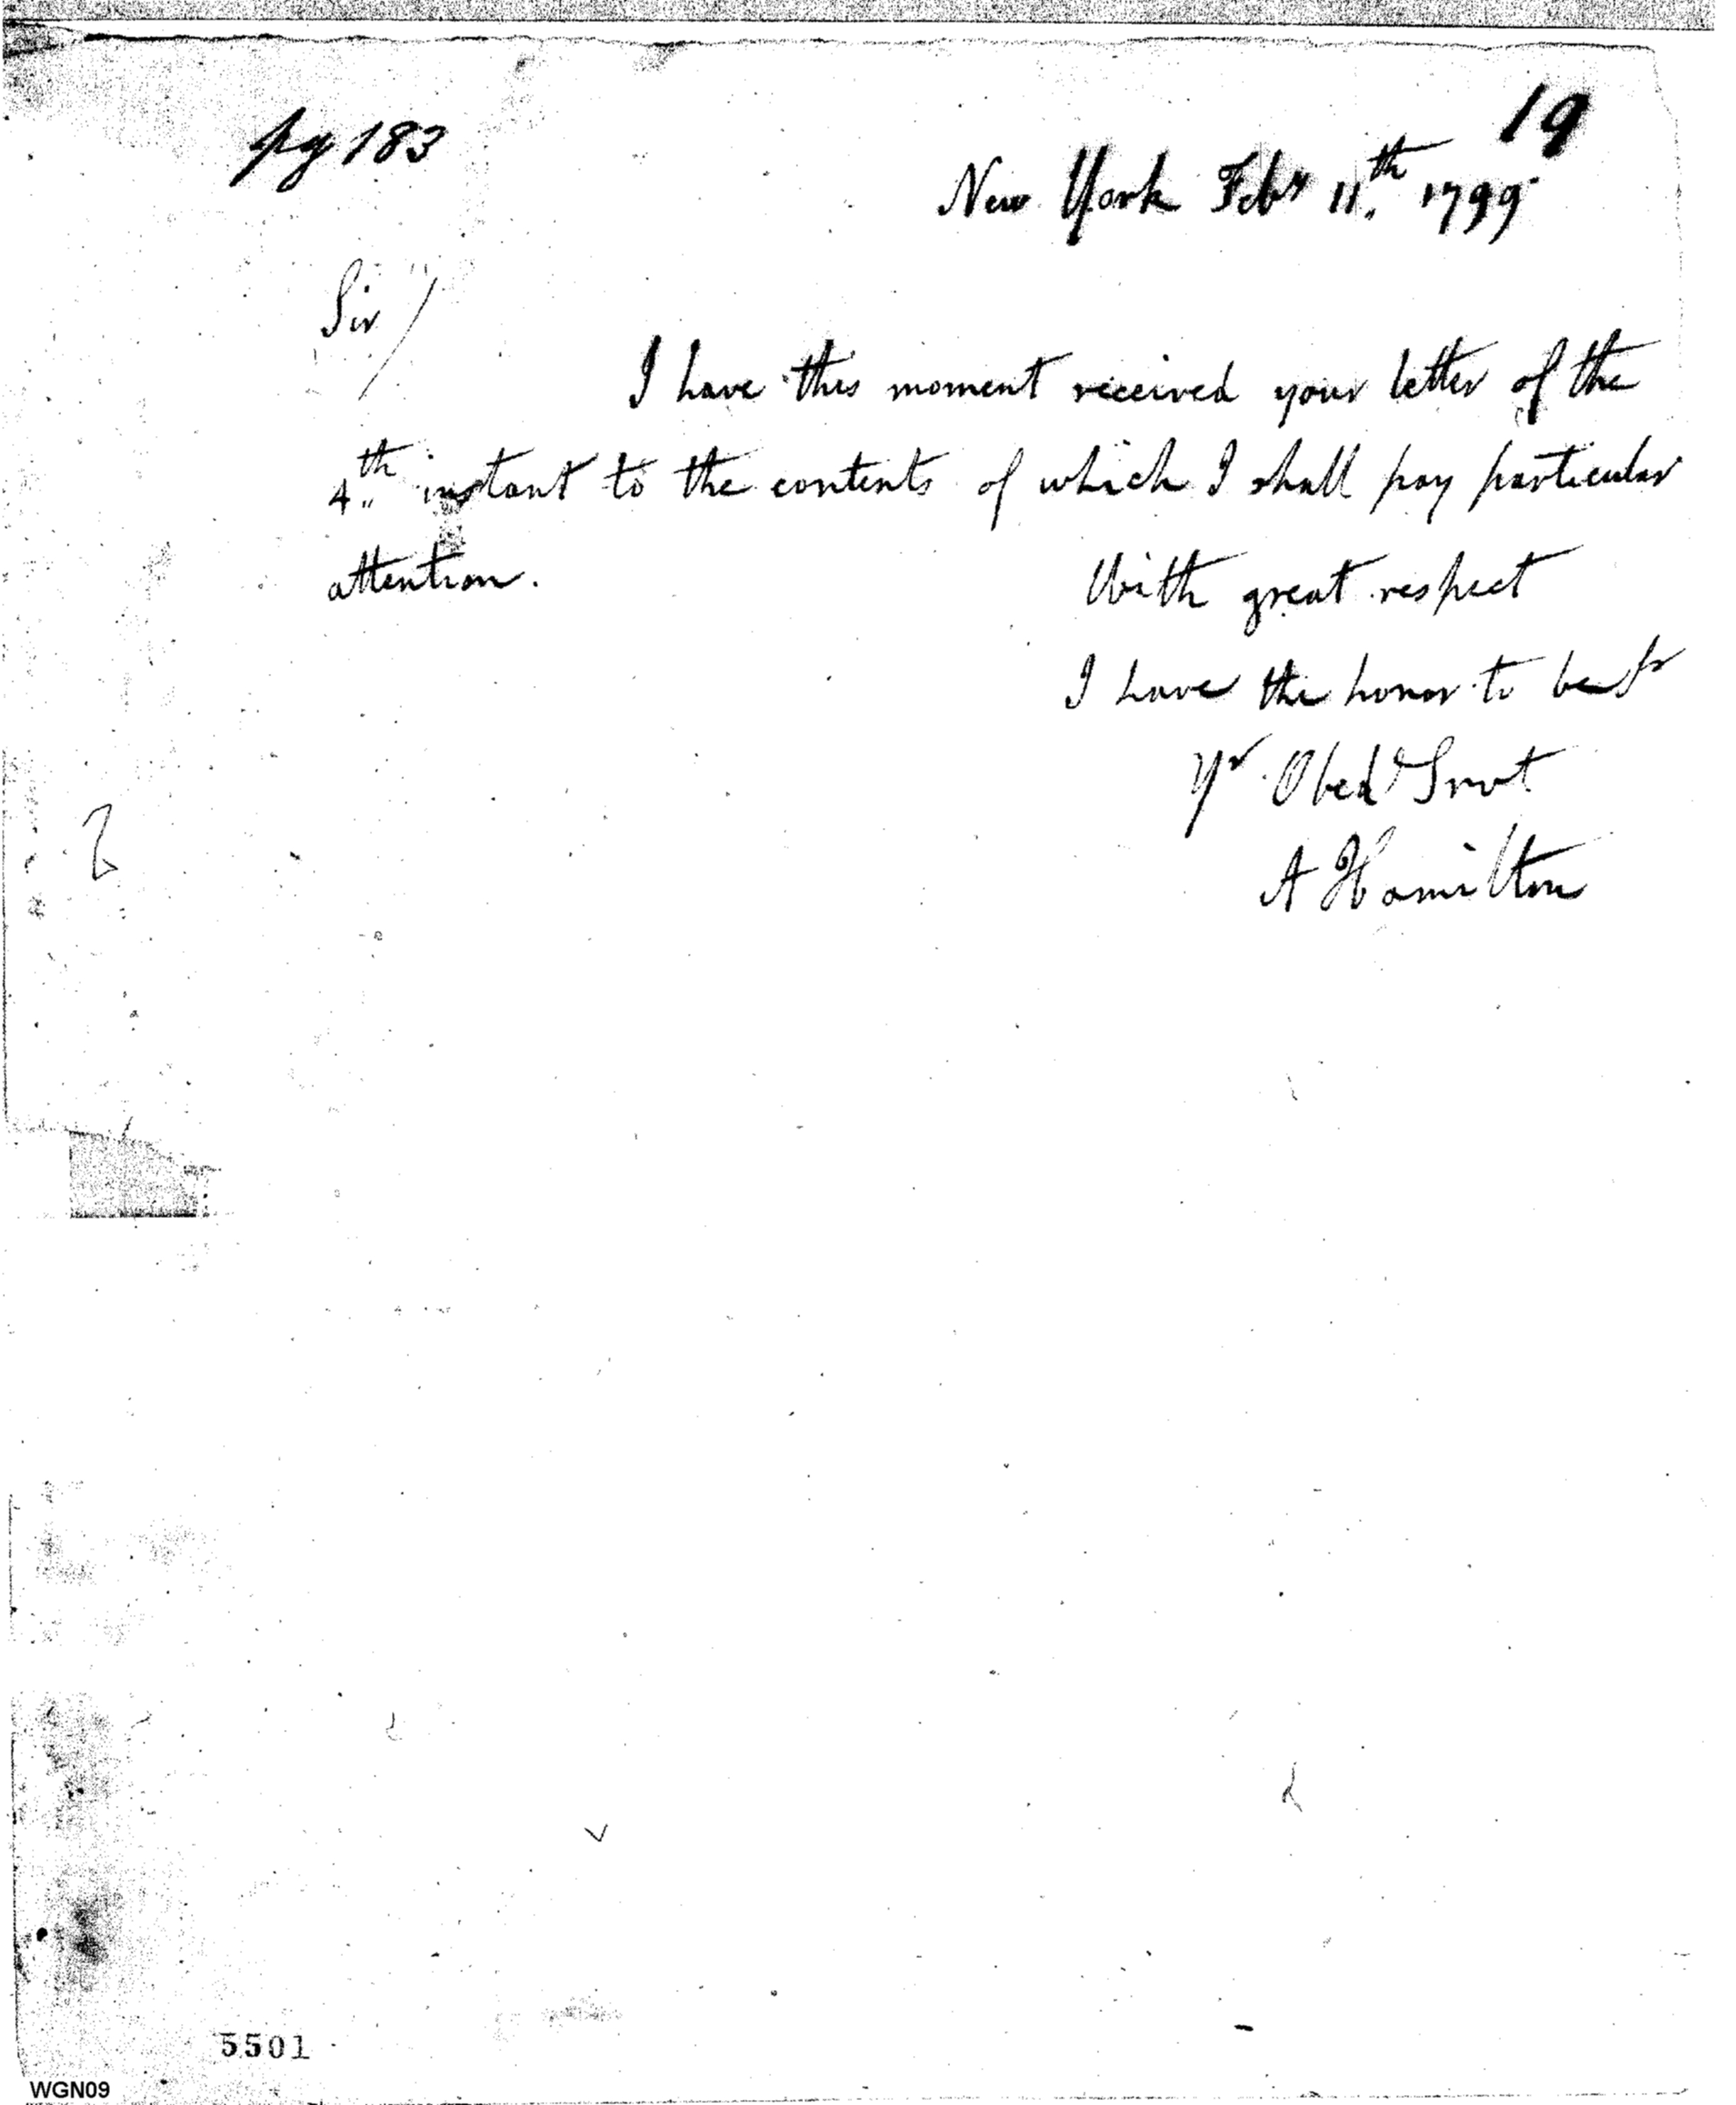 pg 183
19
New York Feby 11th 1799
Sir
I have this moment received your letter of the
4th instant to the contents of which I shall pay particular
attention.
With great respect
I have the honor to be Sr
Yr Obedt Srvt
A Hamilton
5501
WGN09